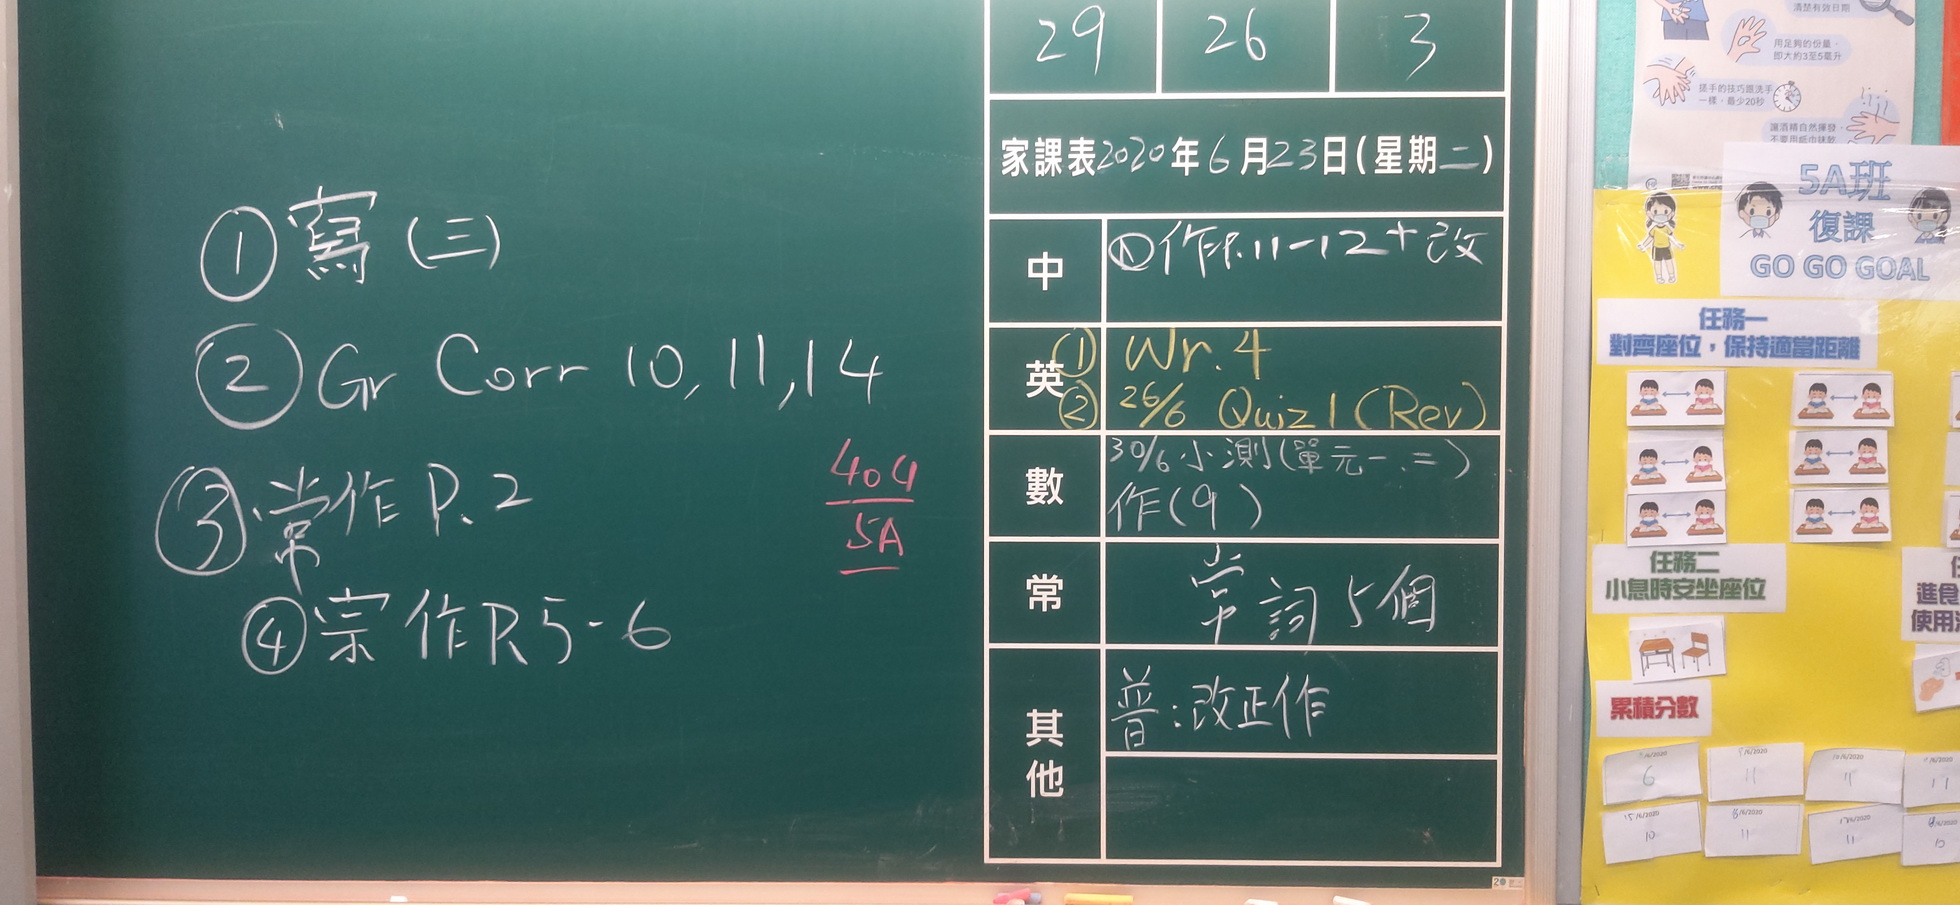 ①寫(三)
②Gr Corr 10, 11, 14
③常作P.2
④宗作P.5-6
404
5A
29 26 3
家課表2020年6月23日(星期二)
中
作P.11-12+改
英
① Wr. 4
② 26/6 Quiz 1 (Rev)
數
30/6小測(單元一.二)
作(9)
常
常詞5個
其他
普:改正作
清楚有效日期
用足夠的份量,
即大約3至5毫升
搓手的技巧跟洗手
一樣,最少20秒
讓酒精自然揮發,
不要用紙巾抹乾
5A班
復課
GO GO GOAL
任務一
對齊座位,保持適當距離
任務二
小息時安坐座位
進食
使用
累積分數
6
11
11
11
15/6/2020
10
11
11